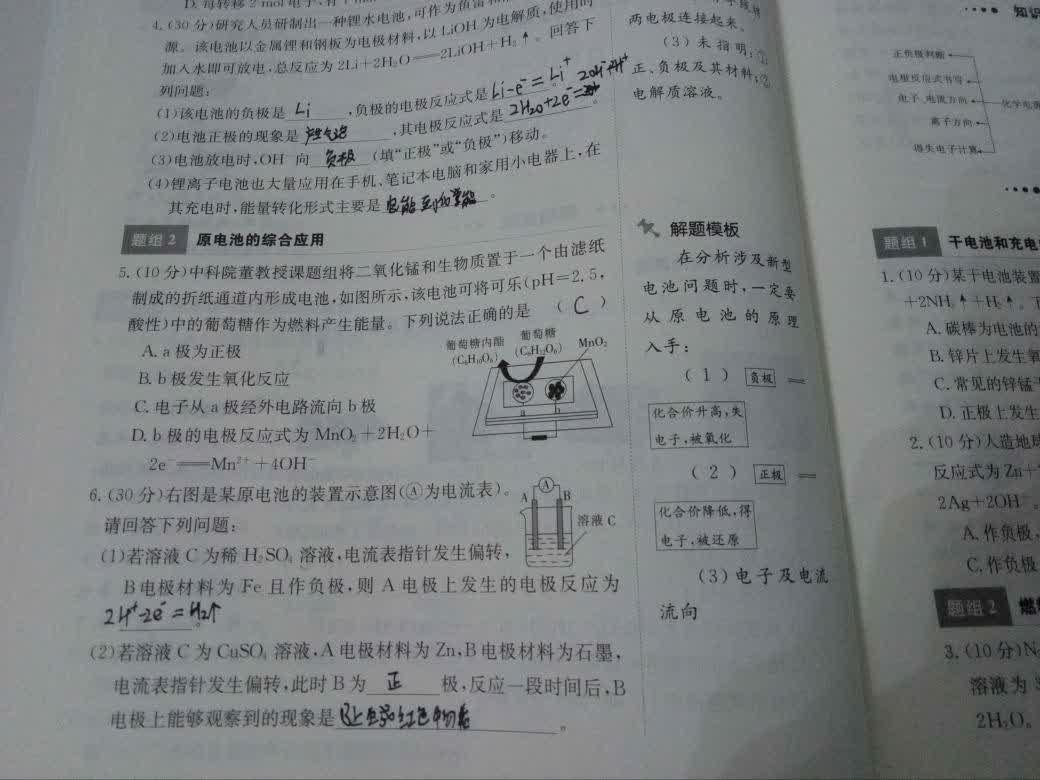 4.(30分)研究人员研制出一种锂水电池,可作为鱼雷和
源。该电池以金属锂和钢板为电极材料,以LiOH为电解质,使用时
加入水即可放电,总反应为2Li+2H₂O══2LiOH+H₂↑。回答下
列问题:
(1)该电池的负极是 Li ,负极的电极反应式是 Li-e⁻=Li⁺
(2)电池正极的现象是 产生气泡 ,其电极反应式是 2H₂O+2e⁻=
(3)电池放电时,OH⁻向 负极 (填“正极”或“负极”)移动。
(4)锂离子电池也大量应用在手机、笔记本电脑和家用小电器上,在
其充电时,能量转化形式主要是 。
题组2 原电池的综合应用
5.(10分)中科院董教授课题组将二氧化锰和生物质置于一个由滤纸
制成的折纸通道内形成电池,如图所示,该电池可将可乐(pH=2.5,
酸性)中的葡萄糖作为燃料产生能量。下列说法正确的是 ( C )
A. a极为正极
B. b极发生氧化反应
C. 电子从a极经外电路流向b极
D. b极的电极反应式为MnO₂+2H₂O+
2e⁻══Mn²⁺+4OH⁻
葡萄糖内酯
(C₆H₁₀O₆)
葡萄糖
(C₆H₁₂O₆)
MnO₂
a b
6.(30分)右图是某原电池的装置示意图(Ⓐ为电流表)。
请回答下列问题:
A Ⓐ B
溶液C
(1)若溶液C为稀H₂SO₄溶液,电流表指针发生偏转,
B电极材料为Fe且作负极,则A电极上发生的电极反应为
2H⁺-2e⁻=H₂↑ 。
(2)若溶液C为CuSO₄溶液,A电极材料为Zn,B电极材料为石墨,
电流表指针发生偏转,此时B为 正 极,反应一段时间后,B
电极上能够观察到的现象是 。
两电极连接起来。
(3)未指明:①
正、负极及其材料;②
电解质溶液。
解题模板
在分析涉及新型
电池问题时,一定要
从原电池的原理
入手:
(1) 负极 ══
化合价升高,失
电子,被氧化
(2) 正极 ══
化合价降低,得
电子,被还原
(3)电子及电流
流向
知识
正负极判断
电极反应式书写
电子、电流方向
离子方向
得失电子计算
化学电源
题组1 干电池和充电
1.(10分)某干电池装置
+2NH₃↑+H₂↑。下
A. 碳棒为电池的
B. 锌片上发生氧
C. 常见的锌锰干
D. 正极上发生
2.(10分)人造地球
反应式为Zn+
2Ag+2OH⁻。
A. 作负极,
C. 作负极
题组2 燃
3.(10分)N
溶液为
2H₂O。